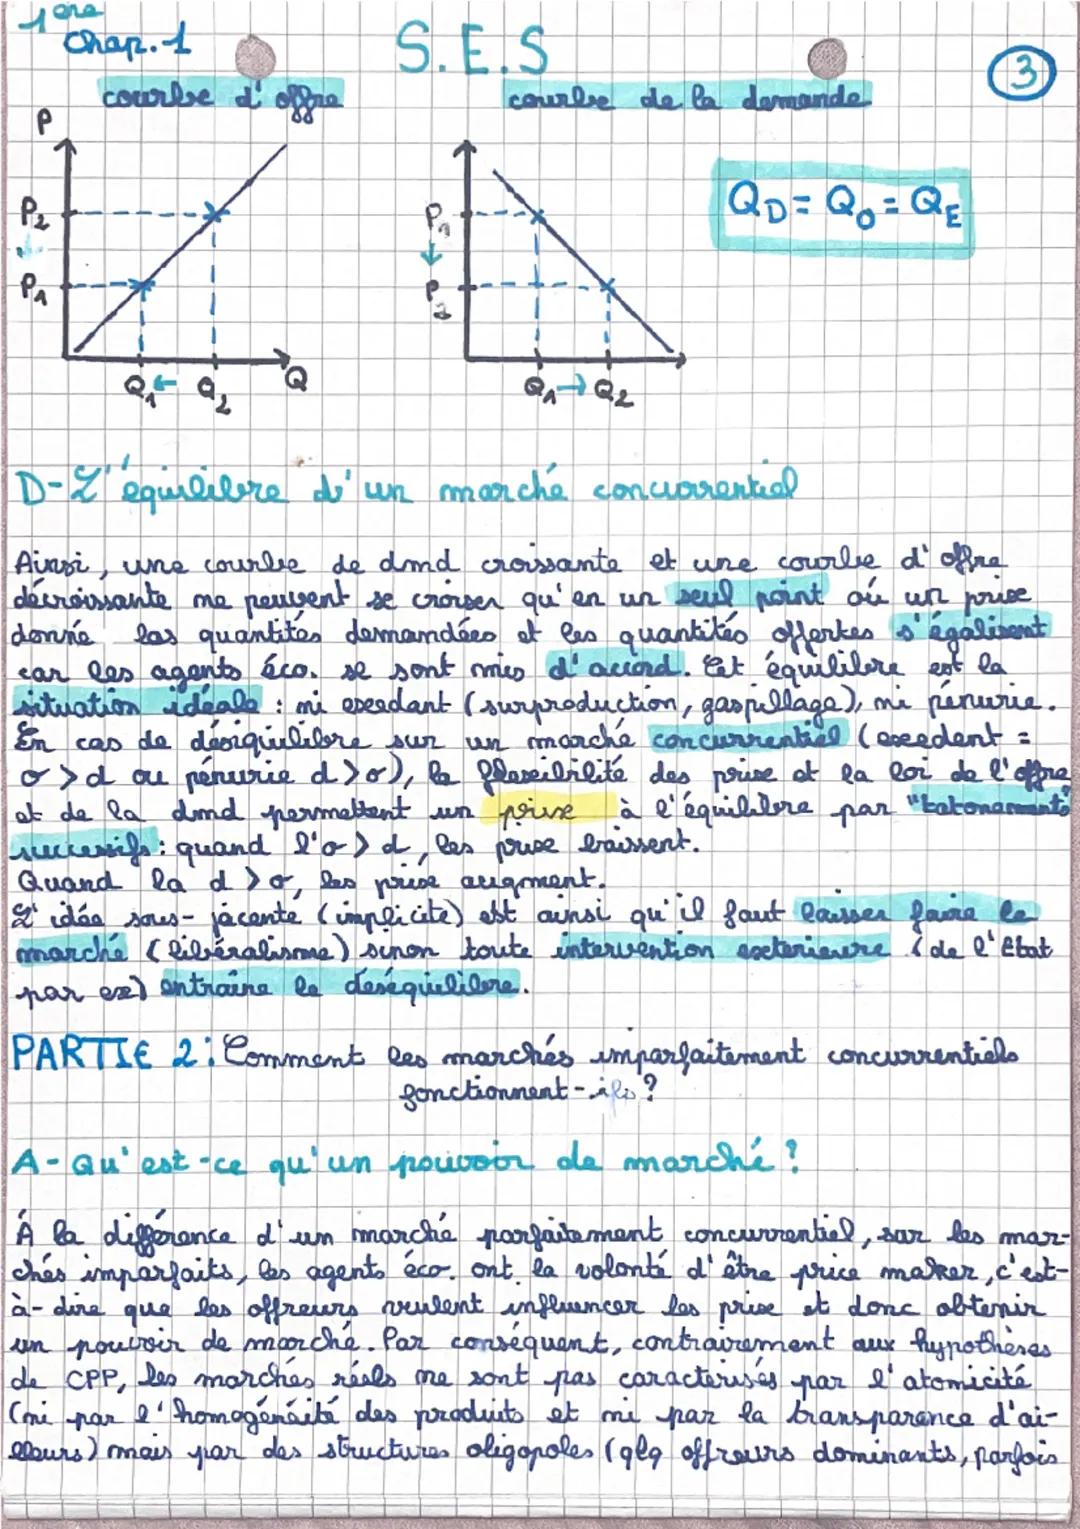 1ère
Chap. 1
S.E.S
3
courbe d'offre
courbe de la demande
P
P2
P1
Q1 ← Q2
Q
P1
P2
Q1 → Q2
QD = QO = QE
D- L'équilibre d'un marché concurrentiel
Ainsi, une courbe de dmd croissante et une courbe d'offre
décroissante ne peuvent se croiser qu'en un seul point où un prix
donné les quantités demandées et les quantités offertes s'égalisent
car les agents éco. se sont mis d'accord. Cet équilibre est la
situation idéale : ni excédant (surproduction, gaspillage), ni pénurie.
En cas de déséquilibre sur un marché concurrentiel (excedent =
o > d ou pénurie d > o), la flexibilité des prix et la loi de l'offre
et de la dmd permettent un prix à l'équilibre par "tatonnements
successifs : quand l'o > d, les prix baissent.
Quand la d > o, les prix augment.
L'idée sous-jacente (implicite) est ainsi qu'il faut laisser faire le
marché (libéralisme) sinon toute intervention exterieure (de l'Etat
par ex) entraîne le déséquilibre.
PARTIE 2 : Comment les marchés imparfaitement concurrentiels
fonctionnent-ils ?
A- Qu'est-ce qu'un pouvoir de marché ?
À la différence d'un marché parfaitement concurrentiel, sur les mar-
chés imparfaits, les agents éco. ont la volonté d'être price maker, c'est-
à-dire que les offreurs veulent influencer les prix et donc obtenir
un pouvoir de marché. Par conséquent, contrairement aux hypothèses
de CPP, les marchés réels ne sont pas caractérisés par l'atomicité
(ni par l'homogénéité des produits et ni par la transparence d'ai-
lleurs) mais par des structures oligopoles (qlq offreurs dominants, parfois